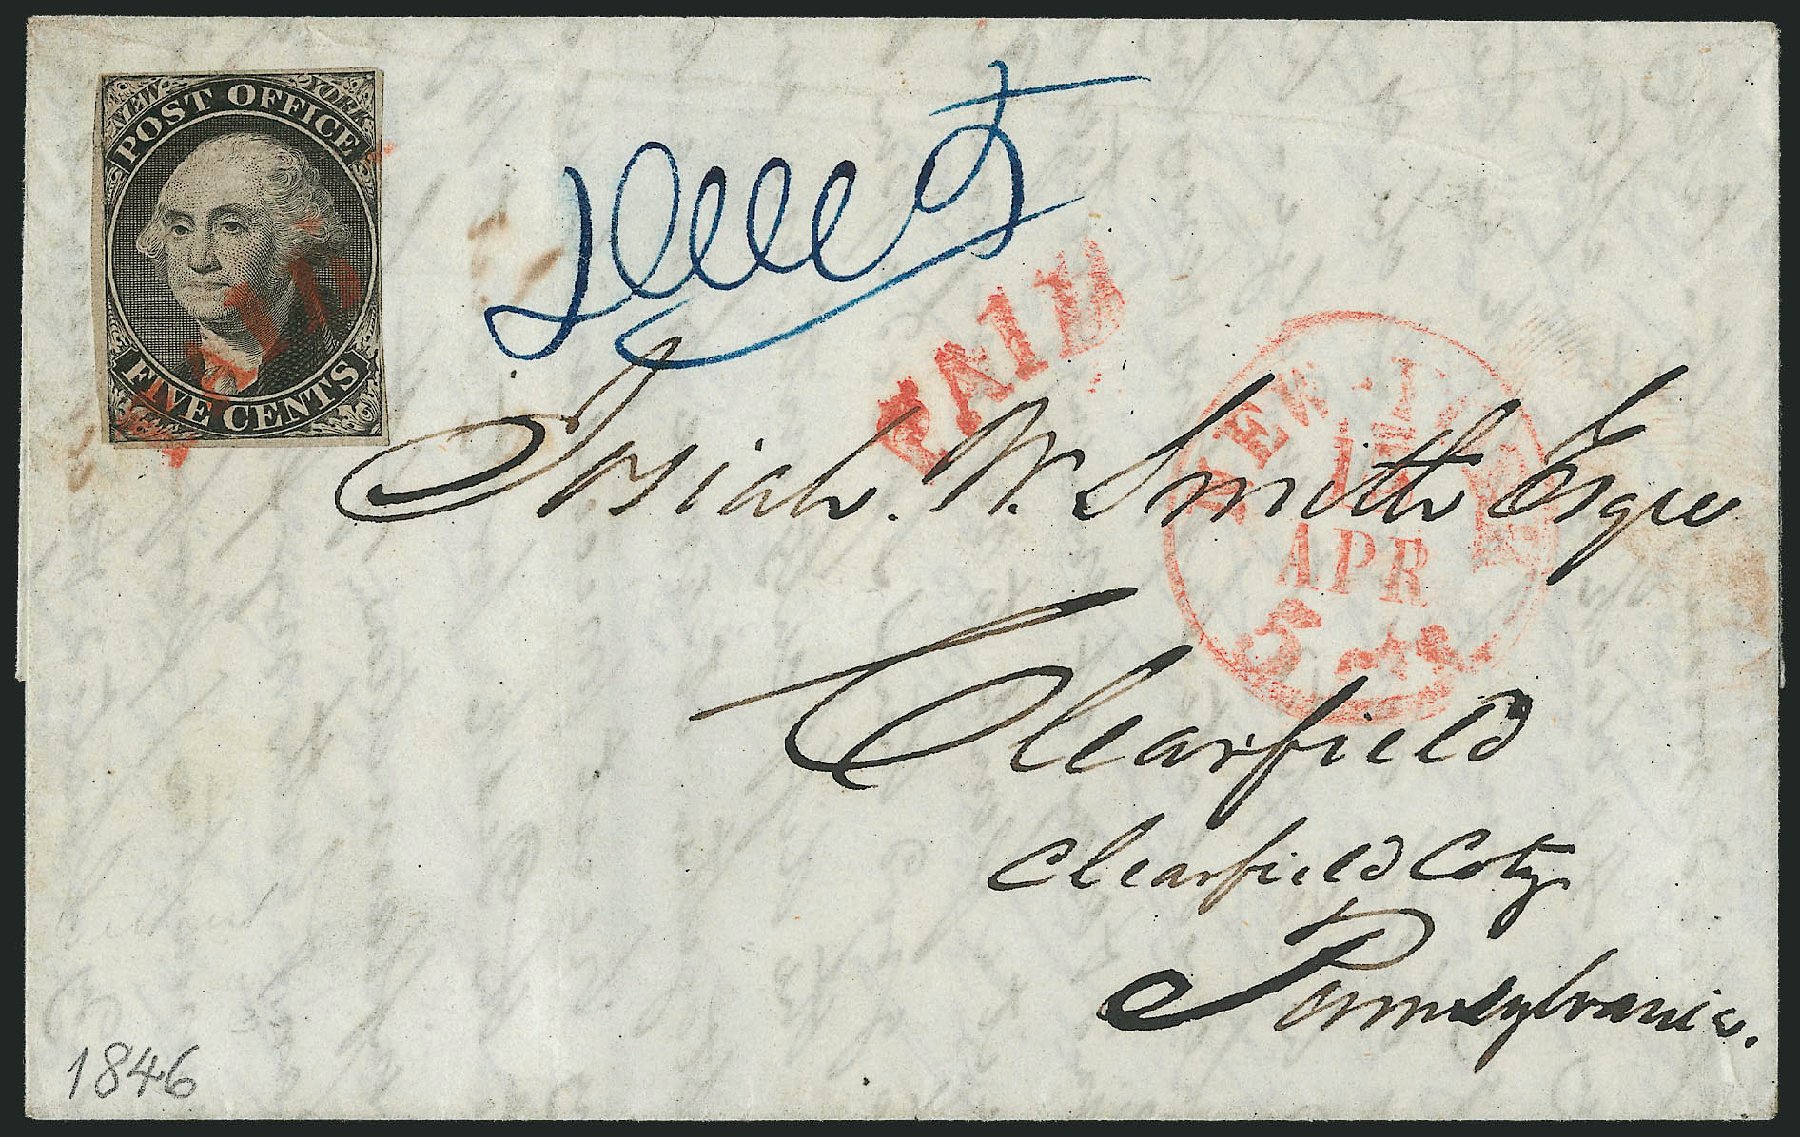 NEW YORK
POST OFFICE
FIVE CENTS
PAID
PAID
NEW-
APR
5 cts
Josiah W. Smith Esqre
Clearfield
Clearfield Coty
Pennsylvania.
1846